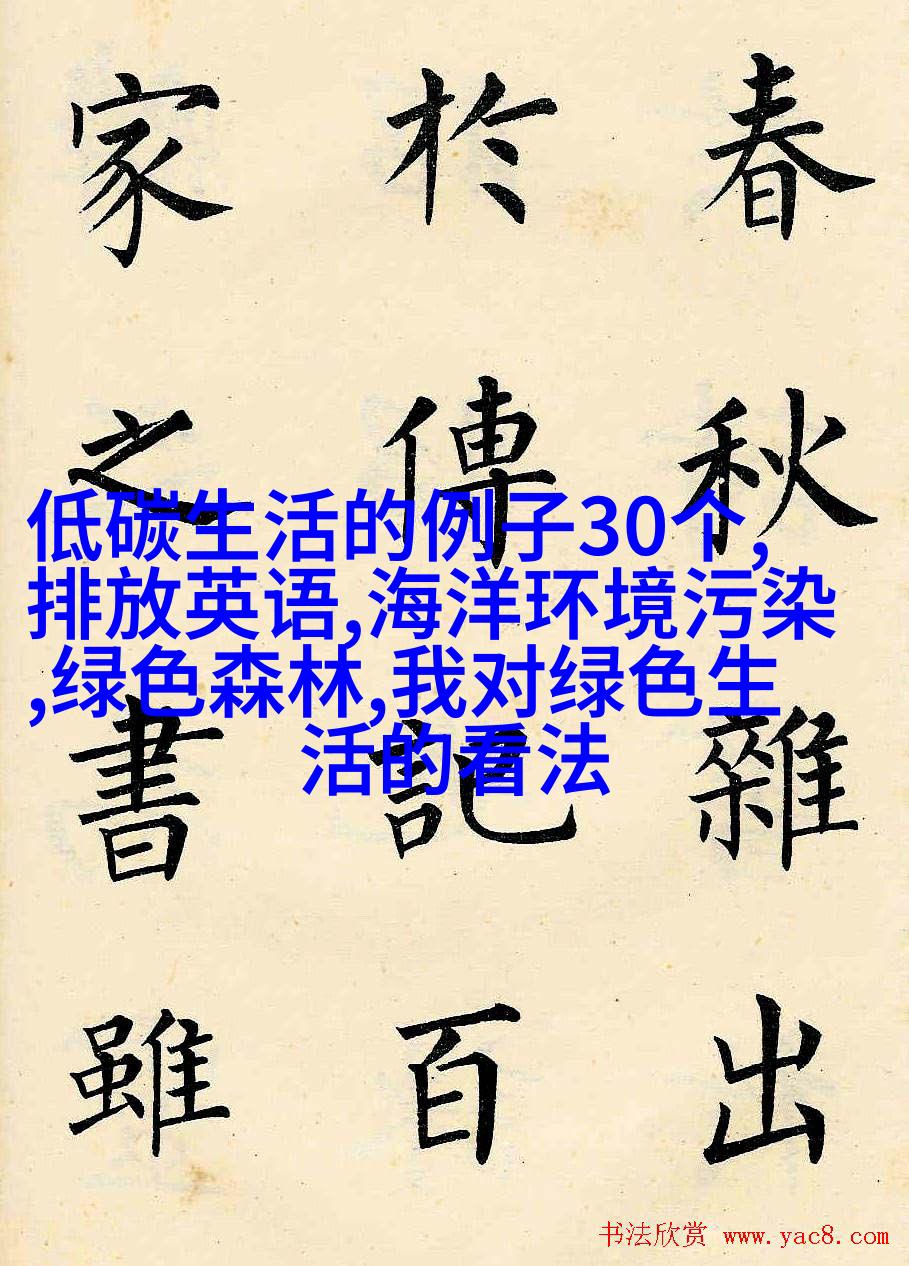 春秋雜出
於傳記百
家之書雖
低碳生活的例子30个,
排放英语,海洋环境污染
,绿色森林,我对绿色生
活的看法
书法欣赏 www.yac8.com